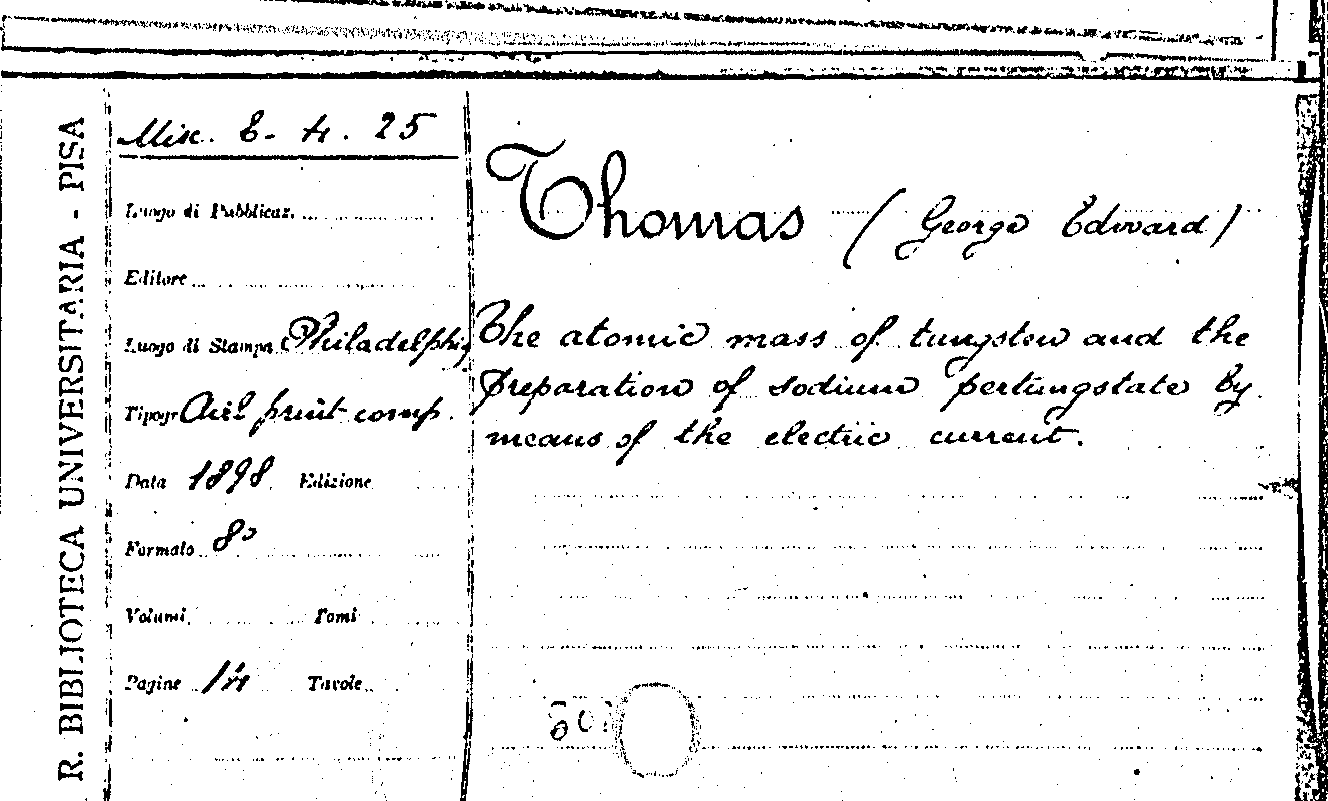 R. BIBLIOTECA UNIVERSITARIA - PISA
Misc. E. 4. 25
Luogo di Pubblicaz.
Editore
Luogo di Stampa Philadelphia
Tipogr print comp.
Data 1898 Edizione
Formato 8°
Volumi Tomi
Pagine 14 Tavole
Thomas (George Edward)
The atomic mass of tungsten and the
preparation of sodium pertungstate by
means of the electric current.